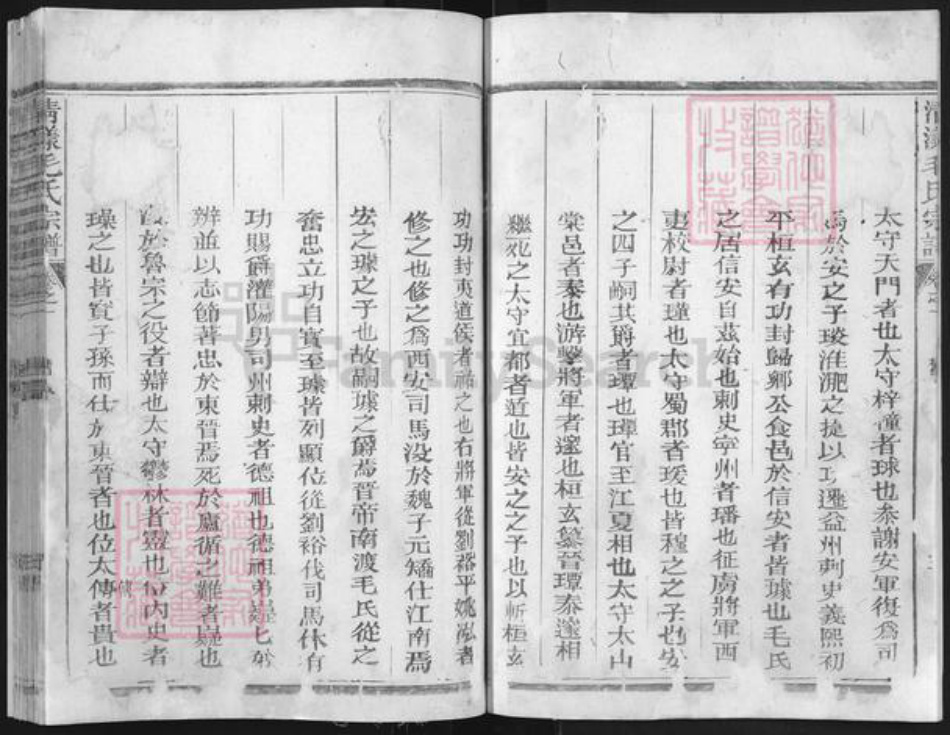 清漾毛氏宗譜
太守天門者也太守梓潼者球也參謝安軍復為司
馬於安之子琰淮淝之捷以功遷益州刺史義熙初
平桓玄有功封歸鄉公食邑於信安者皆璩也毛氏
之居信安自茲始也刺史寧州者璠也征虜將軍西
夷校尉者瑾也太守蜀郡者瑗也皆穆之之子也安
之四子嗣其爵者璋也璋官至江夏相也太守太山
棠邑者泰也游擊將軍者邃也桓玄篡晉璋泰邃相
繼死之太守宜都者遁也皆安之之子也以斬桓玄
功功封夷道侯者祐之也右將軍從劉裕平姚泓者
修之也修之為西安司馬没於魏子元矯仕江南焉
宏之璩之子也故嗣璩之爵焉晉帝南渡毛氏從之
奮忠立功自寶至璩皆列顯位從劉裕伐司馬休有
功賜爵灌陽男司州刺史者德祖也德祖弟嶷嶷弟
辨並以志節著忠於東晉焉死於盧循之難者嶷也
於魯宗之役者辯也太守鬱林者靈也位內史者
璪之也皆寶子孫而仕於東晉者也位太傅者貴也
清漾毛氏宗譜